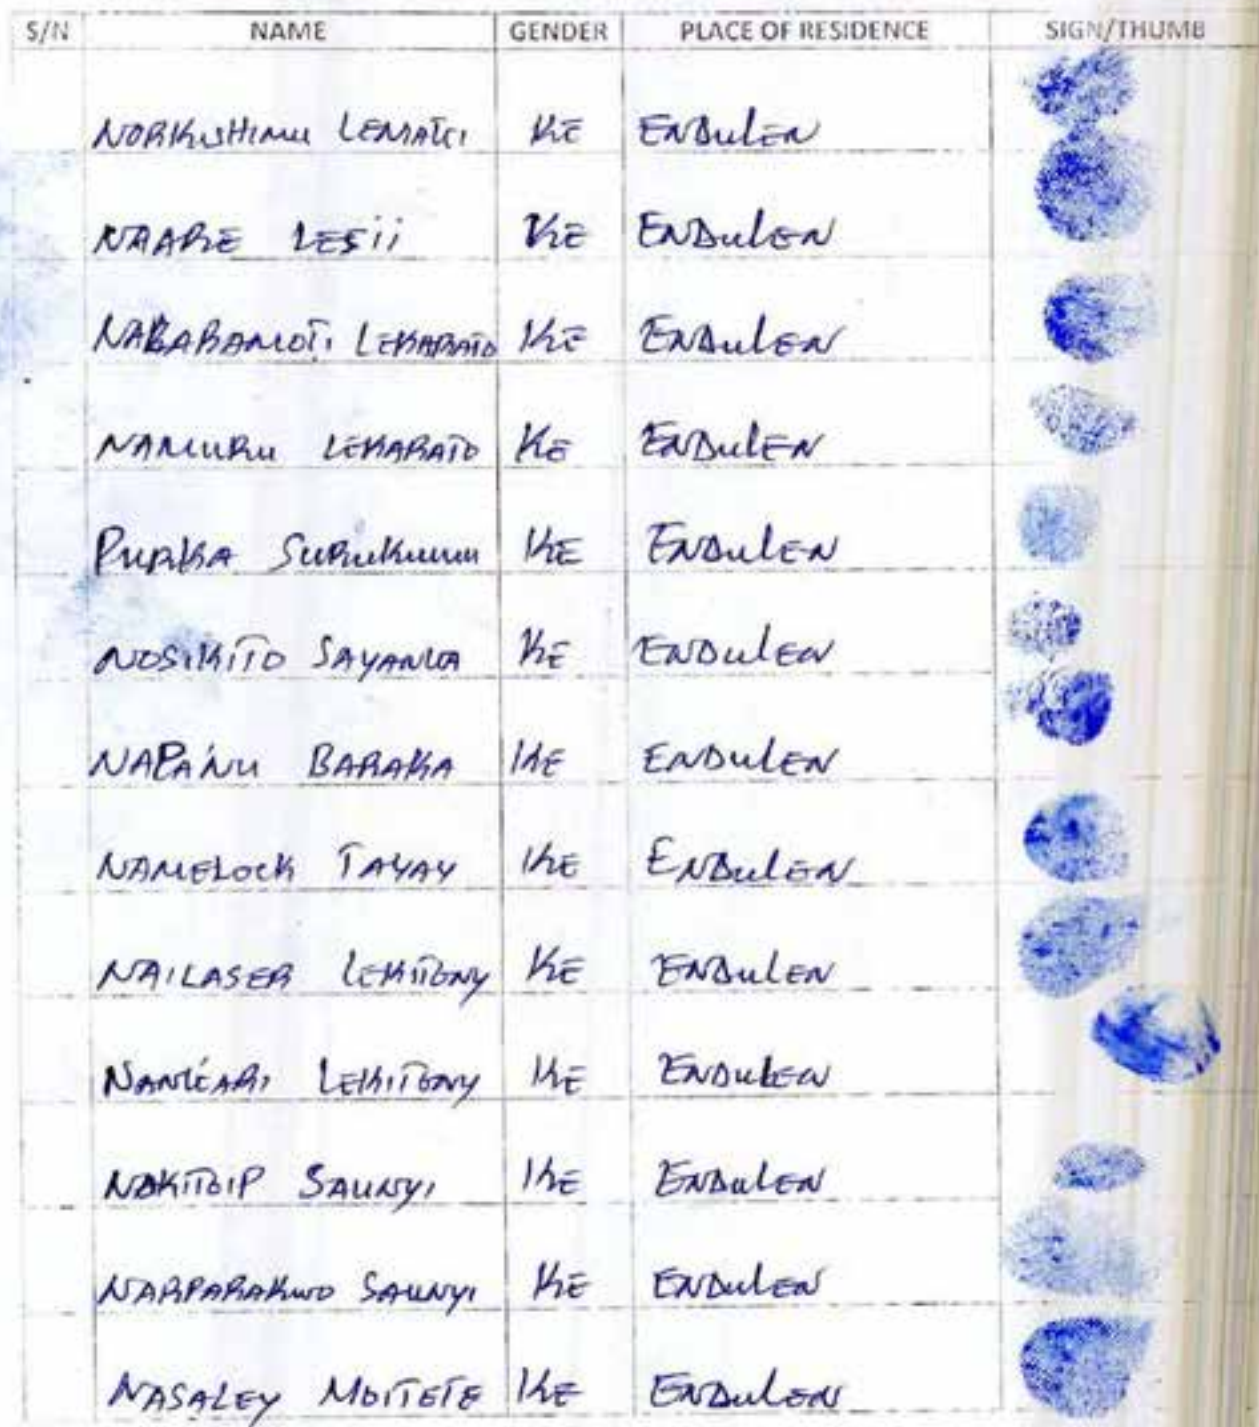 S/N NAME GENDER PLACE OF RESIDENCE SIGN/THUMB
NORKISHIMU LEMATI KE ENDULEN
NAARE LESII KE ENDULEN
LEKARATO KE ENDULEN
NAMURU LEKARATO KE ENDULEN
PURKA KE ENDULEN
NOSIKITO SAYANKA KE ENDULEN
NAPANU BARAKA KE ENDULEN
NAMELOCK TAYAY KE ENDULEN
NAILASER LEKITONY KE ENDULEN
LEKITONY KE ENDULEN
NOKITOIP SAUNYI KE ENDULEN
NARPARAKWO SAUNYI KE ENDULEN
NASALEY MOITETE KE ENDULEN